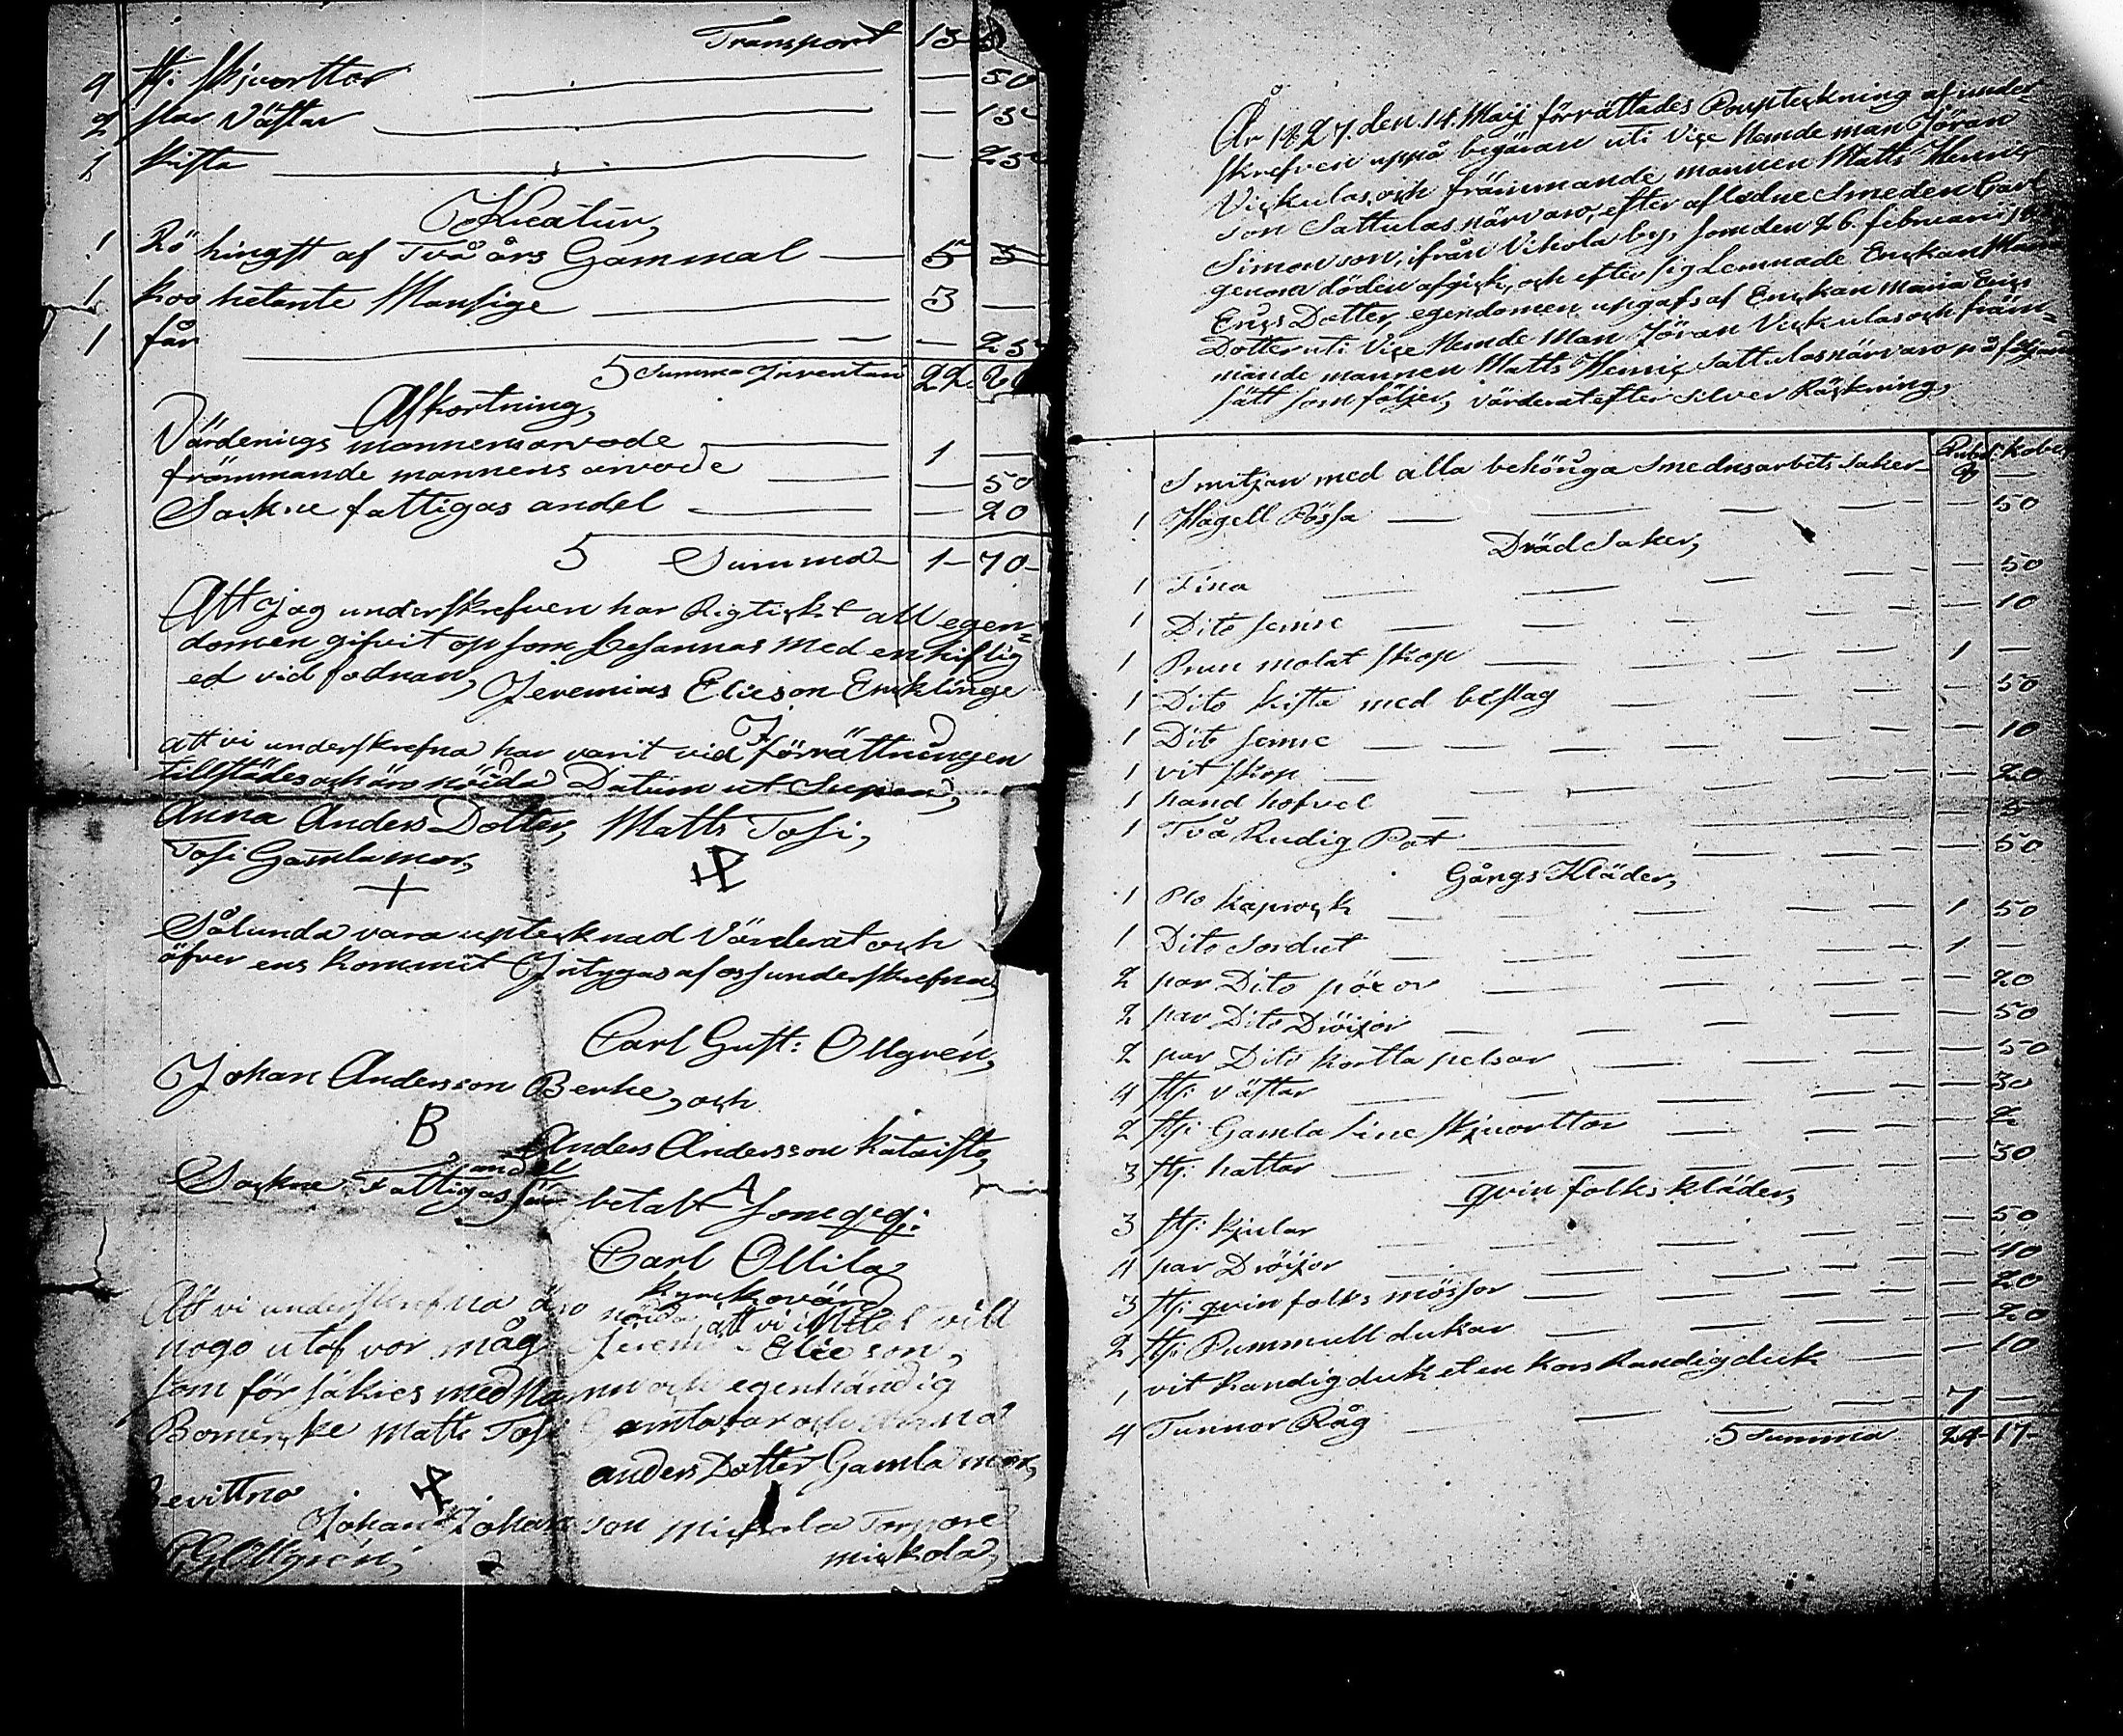 Transport 13
4 st: skjorttor — 50
2 slar Västar — 15
1 kista — 25
Kreatur,
1 Rö hingst af Två års Gammal — 5
1 koo hetante Mansige — 3 —
1 får — 25
S Summa Inventari 22
Afkortning,
Värderings mannens arvode — 1 —
främmande mannens arvode — 50
Sockne fattigas andel — 20
S Summa 1 - 70 -
Att jag underskrefven har Rigtickt all egen=
domen gifvit op som besannas med en
ed vid fodran, Jeremias Elieson Encklinge
att vi underskrefna har varit vid förrättningen
tillstädes och äro nöida Datum ut Supra,
Anna Anders Dotter, Matts Tosi,
Tosi Gamla mor,
Sålunda vara uptecknad Värderat och
äfver ens kommit Intygas af oss underskrefna,
Carl Gust: Ollgrén,
Johan Andersson Berke, och
B
Anders Andersson Kataisto,
A
Sockne Fattigas andel betalt som qvq:
Carl Ollila
Att vi underskrefna äro nöida att vi vill
nogo utaf vor måg Elieson,
som försäkres med Namn och egenhändig
Bomercke Matts Tosi Gamla far och Anna
anders Dotter Gamla mor,
Bevittna
Johan Johanson Mickola Torpare
CGOllgrén, mickola,
År 1827. den. 14. Maij förrättades Boupteckning af under-
skrefven uppå begäran uti Vice Nemde man Jöran
Vickulas, och främmande mannen Matts Henrics
son Sattulas närvaro, efter afledne Smeden Carl
Simonson, ifrån Vihola by, som den 26. februari
genom döden afgick, och efter sig Lemnade Enckan Maria
Erics Dotter, egendomen upgafs af Enckan Maria Erics
Dotter uti Vice Nemde Man Jöran Vickulas och främ=
mande mannen Matts Henric Sattulas närvaro på följande
sätt som följer, värderat efter Silver Räckning,
Rubel: kobek
Smitjan med alla behöriga Smednsarbets Saker — —
1 Hagell Bössa — 50
Dräd Saker,
1 Tina — 50
1 Dito semre — 10
1 Brun molat skop — 1 —
1 Dito kista med beslag — 50
1 Dito semre — 10
1 vit skop — 20
1 hand hofvel — 5
1 Två Rudig Bot — 50
Gångs Kläder,
1 Blo kaprock — 1 50
1 Dito Sordut — 1 —
2 par Dito pöxor — 20
2 par Dito Dröijor — 50
2 par Dito kortta pelsar — 50
4 st: Västar — 30
2 st: Gamla Line skjuorttor — 2
3 st: hattar — 30
qvin folks kläder,
3 st: kjular — 50
4 par Dröijor — 40
3 st: qvinfolks mössor — 20
2 st: Bummull dukar — 20
1 vit Randig duk et en kors Randig duk — 10
4 Tunnor Råg — 7 —
S Summa 24 - 17 -